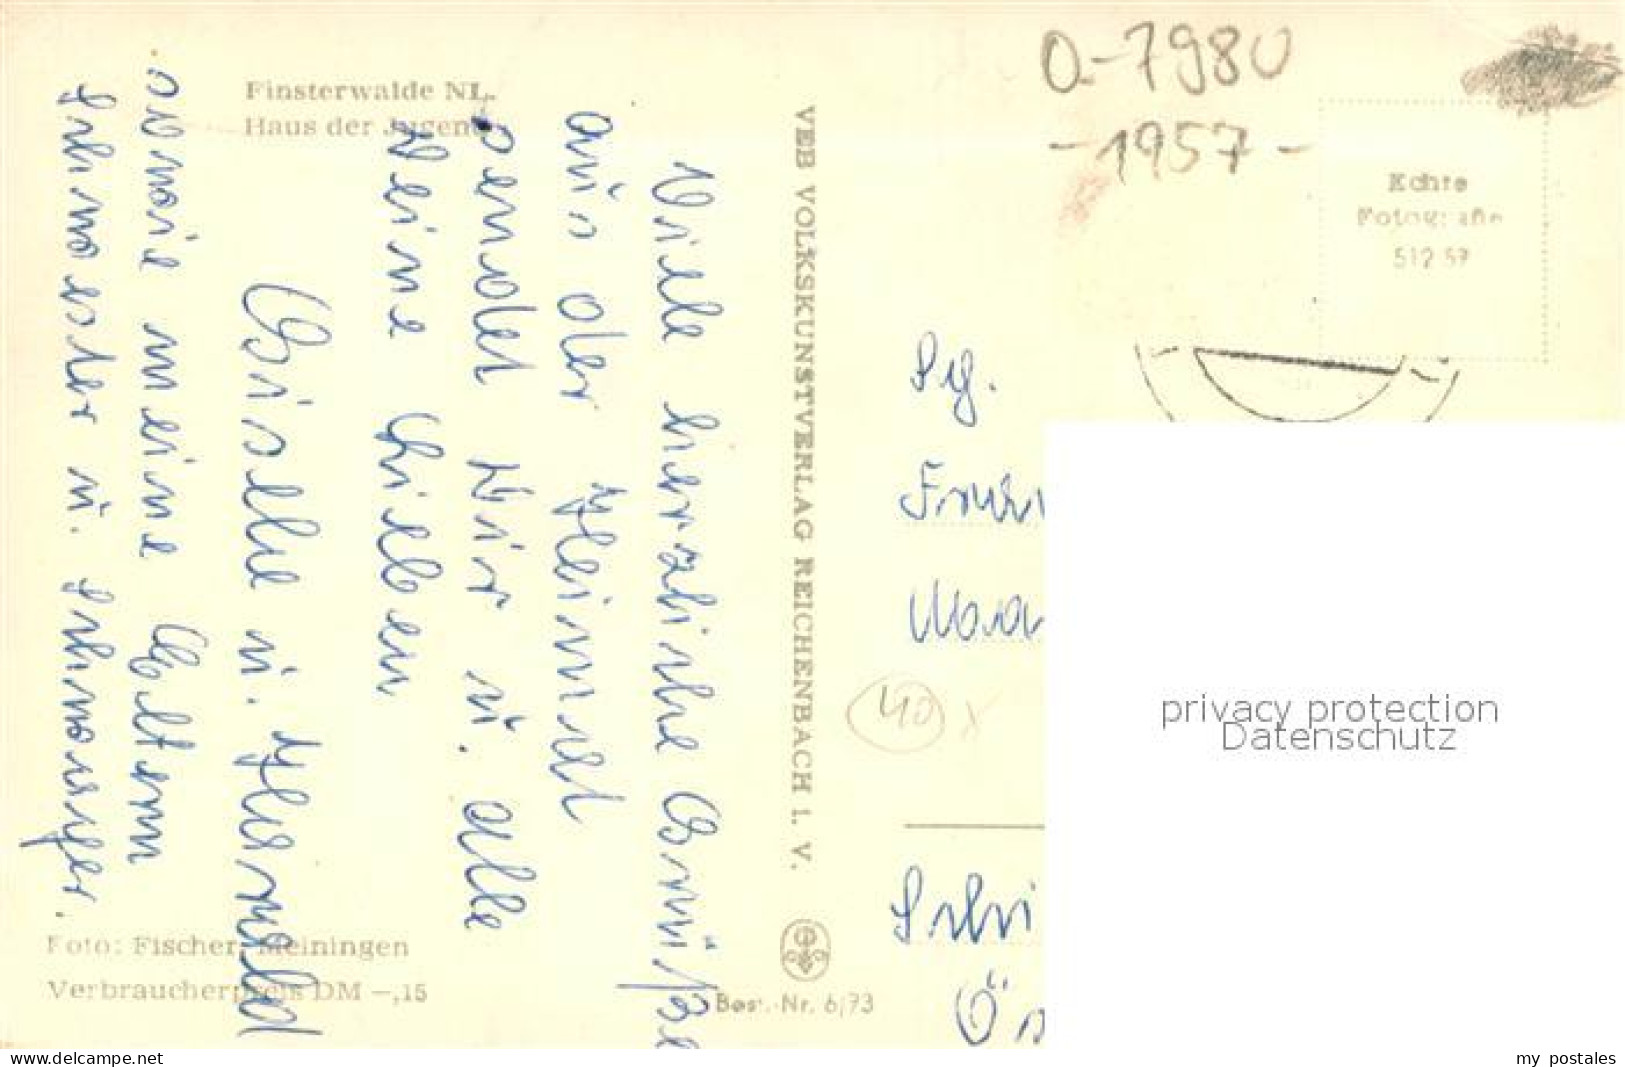 Finsterwalde NL.
Haus der Jugend
Viele herzliche Grüße
aus der Heimat
sendet Dir u. alle
Deine Lieben
Giselle u. Herwald
sowie meine Eltern
Schwester u. Schwager.
Foto: Fischer, Meiningen
Verbraucherpreis DM —,15
VEB VOLKSKUNSTVERLAG REICHENBACH i. V.
Best.-Nr. 6/73
O-7980
-1957-
Echte
Fotografie
512 57
40 x
privacy protection
Datenschutz
www.delcampe.net
my postales